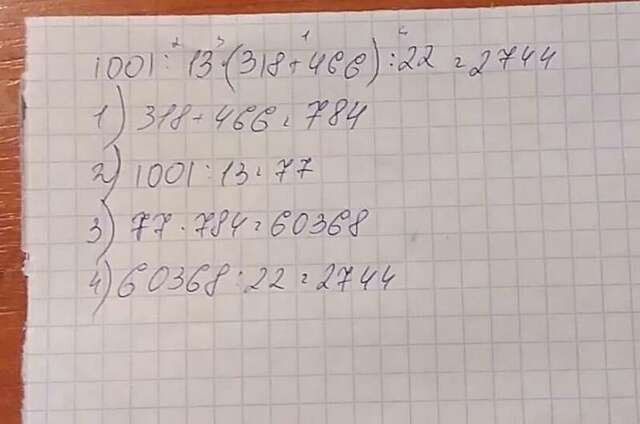 1001 : 13 · (318 + 466) : 22 = 2744
1) 318 + 466 = 784
2) 1001 : 13 = 77
3) 77 · 784 = 60368
4) 60368 : 22 = 2744